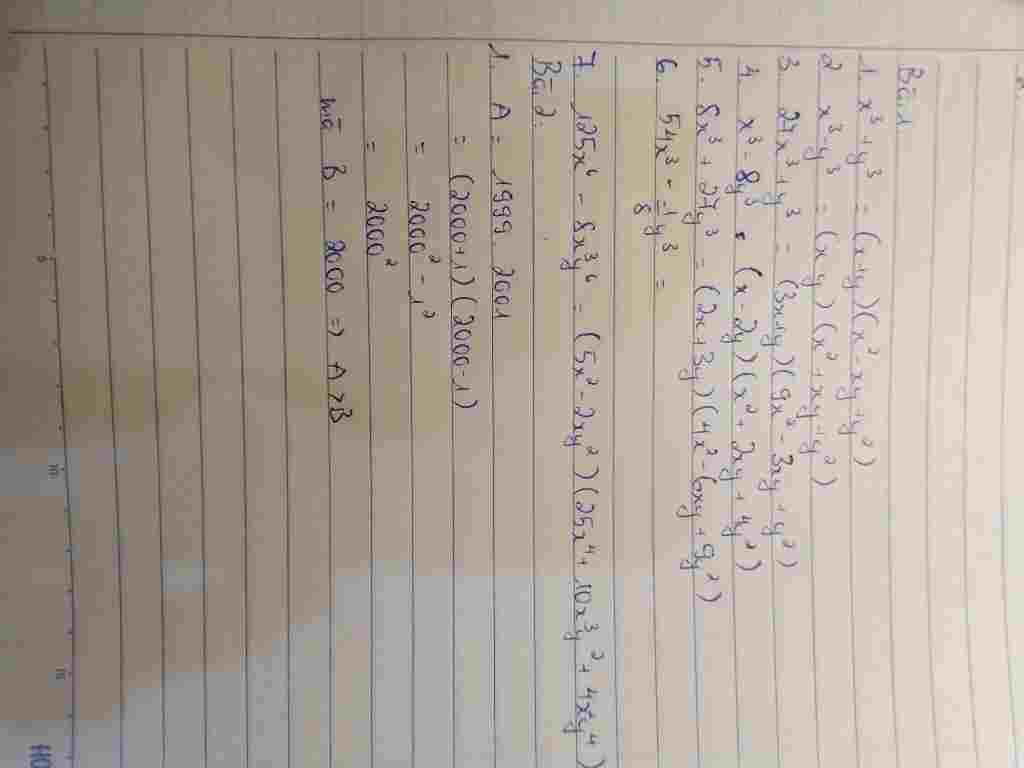 Bài 1
1. x³ + y³ = (x+y)(x² - xy + y²)
2. x³ - y³ = (x-y)(x² + xy + y²)
3. 27x³ + y³ = (3x+y)(9x² - 3xy + y²)
4. x³ - 8y³ = (x - 2y)(x² + 2xy + 4y²)
5. 8x³ + 27y³ = (2x + 3y)(4x² - 6xy + 9y²)
6. 54x³ - 1/8 y³ =
7. 125x⁶ - 8x³y⁶ = (5x² - 2xy²)(25x⁴ + 10x³y² + 4x²y⁴)
Bài 2:
1. A = 1999. 2001
= (2000+1)(2000-1)
= 2000² - 1²
= 2000²
mà B = 2000 => A > B
5
10
15